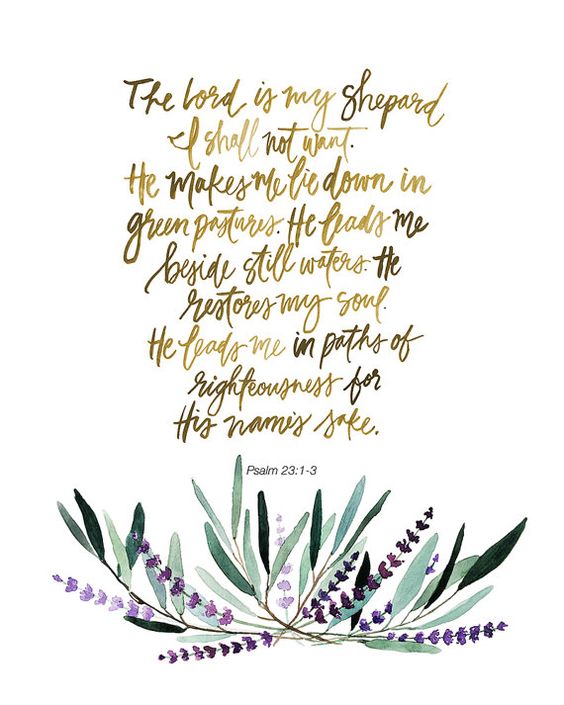 The Lord is my Shepard
I shall not want.
He makes me lie down in
green pastures. He leads me
beside still waters. He
restores my soul.
He leads me in paths of
righteousness for
His name's sake.
Psalm 23:1-3